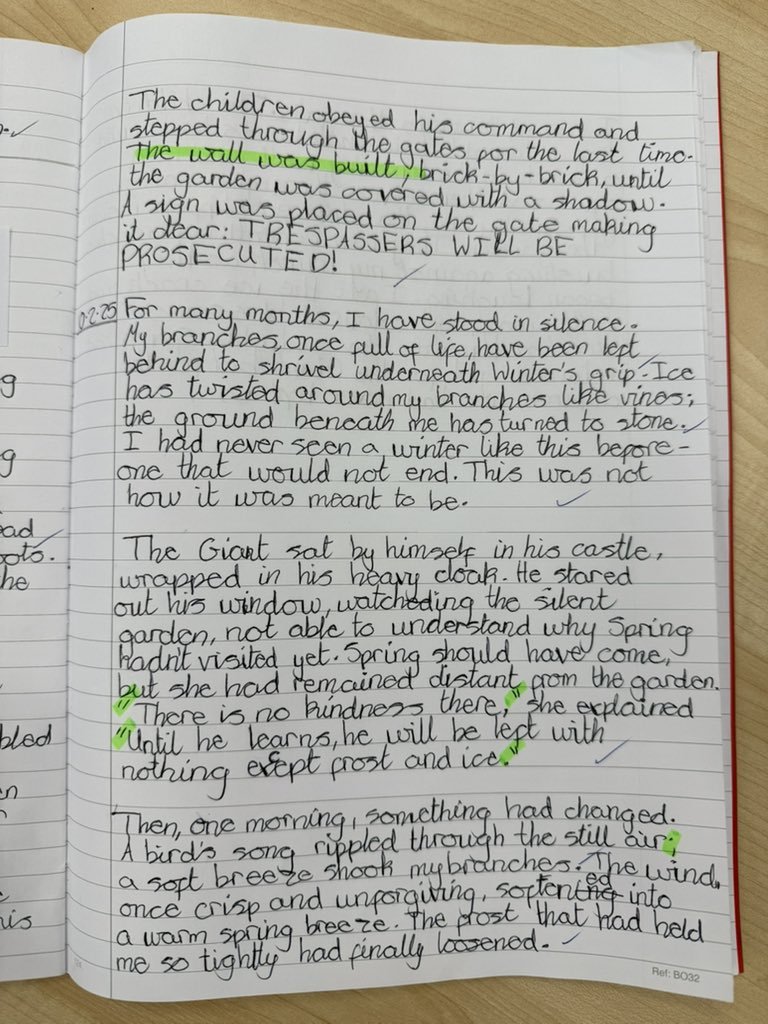 The children obeyed his command and
stepped through the gates for the last time.
The wall was built, brick-by-brick, until
the garden was covered with a shadow.
A sign was placed on the gate making
it clear: TRESPASSERS WILL BE
PROSECUTED!
For many months, I have stood in silence.
My branches, once full of life, have been left
behind to shrivel underneath Winter's grip. Ice
has twisted around my branches like vines;
the ground beneath me has turned to stone.
I had never seen a winter like this before-
one that would not end. This was not
how it was meant to be.
The Giant sat by himself in his castle,
wrapped in his heavy cloak. He stared
out his window, watching the silent
garden, not able to understand why Spring
hadn't visited yet. Spring should have come,
but she had remained distant from the garden.
"There is no kindness there," she explained
"Until he learns, he will be left with
nothing except frost and ice."
Then, one morning, something had changed.
A bird's song rippled through the still air;
a soft breeze shook my branches. The wind,
once crisp and unforgiving, softened into
a warm spring breeze. The frost that had held
me so tightly had finally loosened.
Ref: BO32
g
g
oots.
he
bled
n
his